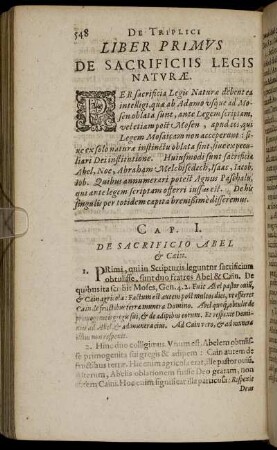 548 DE TRIPLICI
LIBER PRIMVS
DE SACRIFICIIS LEGIS
NATVRÆ.
PER sacrificia Legis Naturæ debent ea
intelligi, quæ ab Adamo vsque ad Mo-
sen oblata sunt, ante Legem scriptam,
vel etiam post Mosen, apud eos, qui
Legem Mosaicam non acceperunt: si-
ue ex solo naturæ instinctu oblata sint, siue ex pecu-
liari Dei instinctione. Huiusmodi sunt sacrificia
Abel, Noe, Abraham, Melchisedech, Isaac, Iacob,
Iob. Quibus annumerari potest Agnus Paschalis,
qui ante legem scriptam offerri iussus est. De his
singulis per totidem capita breuissimè disseremus.
CAP. I.
DE SACRIFICIO ABEL
& Cain.
1. PRimi, qui in Scripturis leguntur sacrificium
obtulisse, sunt duo fratres Abel & Cain. De
quibus ita scribit Moses, Gen. 4. 2. Fuit Abel pastor ouium,
& Cain agricola: Factum est autem post multos dies, vt offerret
Cain de fructibus terræ munera Domino. Abel quoque obtulit de
primogenitis gregis sui, & de adipibus eorum. Et respexit Domi-
nus ad Abel, & ad munera eius. Ad Cain vero, & ad munera
illius non respexit.
2. Hinc duo colliguntur. Vnum est, Abelem obtulis-
se primogenita sui gregis & adipem: Cain autem de
fructibus terræ. Hic enim agricola erat, ille pastor ouium.
Alterum, Abelis oblationem fuisse Deo gratam, non
autem Caini. Hoc enim significat illa particula: Respexit
Deus